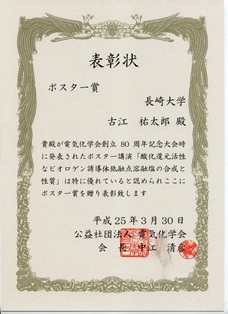 表彰状
ポスター賞
長崎大学
古江 祐太郎 殿
貴殿が電気化学会創立80周年記念大会時
に発表されたポスター講演「酸化還元活性
なビオロゲン誘導体低融点溶融塩の合成と
性質」は特に優れていると認められここに
ポスター賞を贈り表彰致します
平成25年3月30日
公益社団法人 電気化学会
会長 中江 清彦